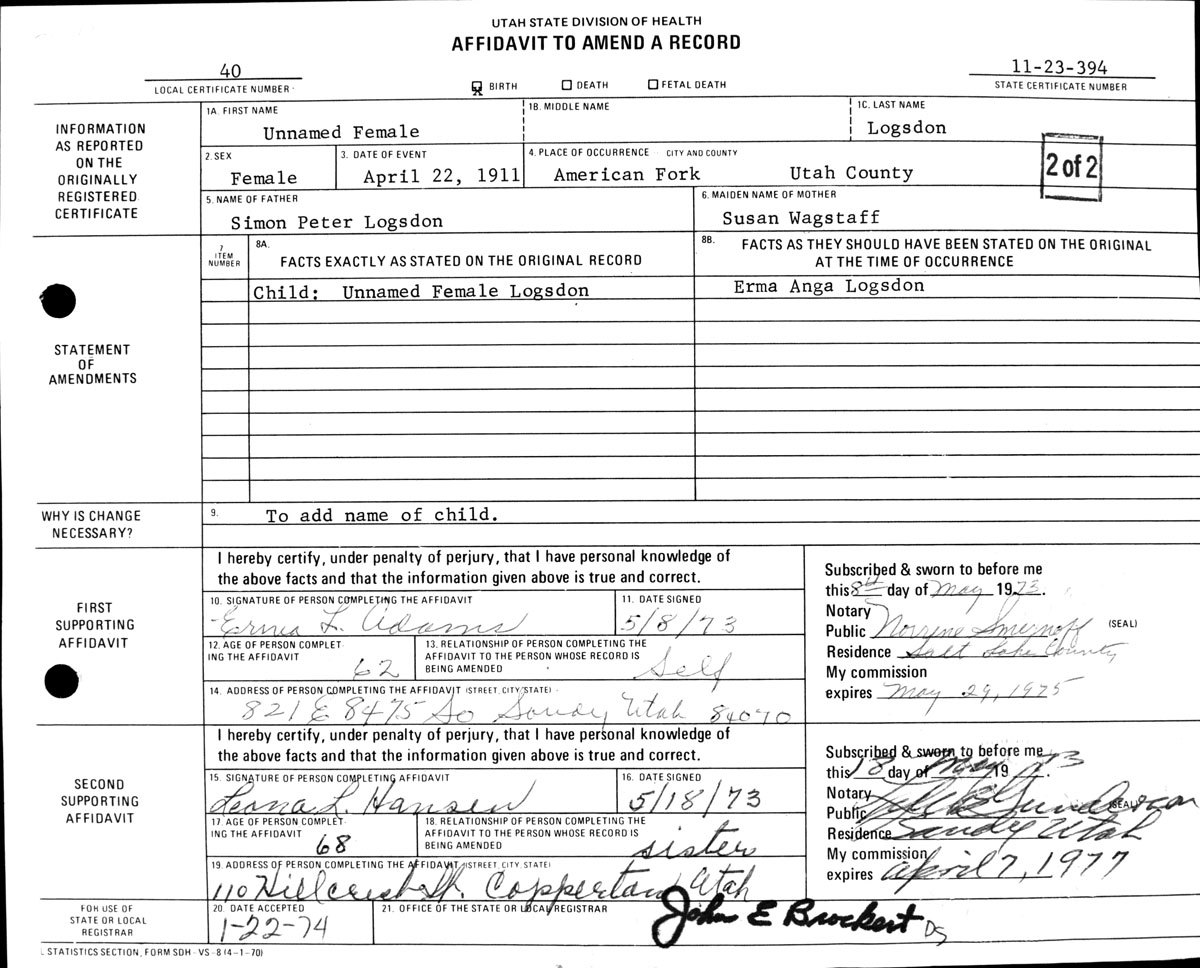 UTAH STATE DIVISION OF HEALTH
AFFIDAVIT TO AMEND A RECORD
40
LOCAL CERTIFICATE NUMBER
BIRTH
DEATH
FETAL DEATH
11-23-394
STATE CERTIFICATE NUMBER
INFORMATION
AS REPORTED
ON THE
ORIGINALLY
REGISTERED
CERTIFICATE
1A. FIRST NAME
Unnamed Female
1B. MIDDLE NAME
1C. LAST NAME
Logsdon
2. SEX
Female
3. DATE OF EVENT
April 22, 1911
4. PLACE OF OCCURRENCE - CITY AND COUNTY
American Fork Utah County
2 of 2
5. NAME OF FATHER
Simon Peter Logsdon
6. MAIDEN NAME OF MOTHER
Susan Wagstaff
STATEMENT
OF
AMENDMENTS
7
ITEM
NUMBER
8A.
FACTS EXACTLY AS STATED ON THE ORIGINAL RECORD
8B.
FACTS AS THEY SHOULD HAVE BEEN STATED ON THE ORIGINAL
AT THE TIME OF OCCURRENCE
Child: Unnamed Female Logsdon
Erma Anga Logsdon
WHY IS CHANGE
NECESSARY?
9.
To add name of child.
FIRST
SUPPORTING
AFFIDAVIT
I hereby certify, under penalty of perjury, that I have personal knowledge of
the above facts and that the information given above is true and correct.
10. SIGNATURE OF PERSON COMPLETING THE AFFIDAVIT
Erma L. Adams
11. DATE SIGNED
5/8/73
12. AGE OF PERSON COMPLET-
ING THE AFFIDAVIT
62
13. RELATIONSHIP OF PERSON COMPLETING THE
AFFIDAVIT TO THE PERSON WHOSE RECORD IS
BEING AMENDED
Self
14. ADDRESS OF PERSON COMPLETING THE AFFIDAVIT (STREET, CITY/STATE)
821 E 8475 So Sandy Utah 84070
Subscribed & sworn to before me
this 8th day of May 1973.
Notary
Public Norrine Smirnoff (SEAL)
Residence Salt Lake County
My commission
expires May 29, 1975
SECOND
SUPPORTING
AFFIDAVIT
I hereby certify, under penalty of perjury, that I have personal knowledge of
the above facts and that the information given above is true and correct.
15. SIGNATURE OF PERSON COMPLETING AFFIDAVIT
Leona L. Hansen
16. DATE SIGNED
5/18/73
17. AGE OF PERSON COMPLET-
ING THE AFFIDAVIT
68
18. RELATIONSHIP OF PERSON COMPLETING THE
AFFIDAVIT TO THE PERSON WHOSE RECORD IS
BEING AMENDED
sister
19. ADDRESS OF PERSON COMPLETING THE AFFIDAVIT (STREET, CITY, STATE)
110 Hillcrest St. Copperton, Utah
Subscribed & sworn to before me
this 18 day of May 1973.
Notary
Public (SEAL)
Residence Sandy Utah
My commission
expires April 7, 1977
FOR USE OF
STATE OR LOCAL
REGISTRAR
20. DATE ACCEPTED
1-22-74
21. OFFICE OF THE STATE OR LOCAL REGISTRAR
John E Brockert DS
L STATISTICS SECTION, FORM SDH - VS - 8 (4-1-70)